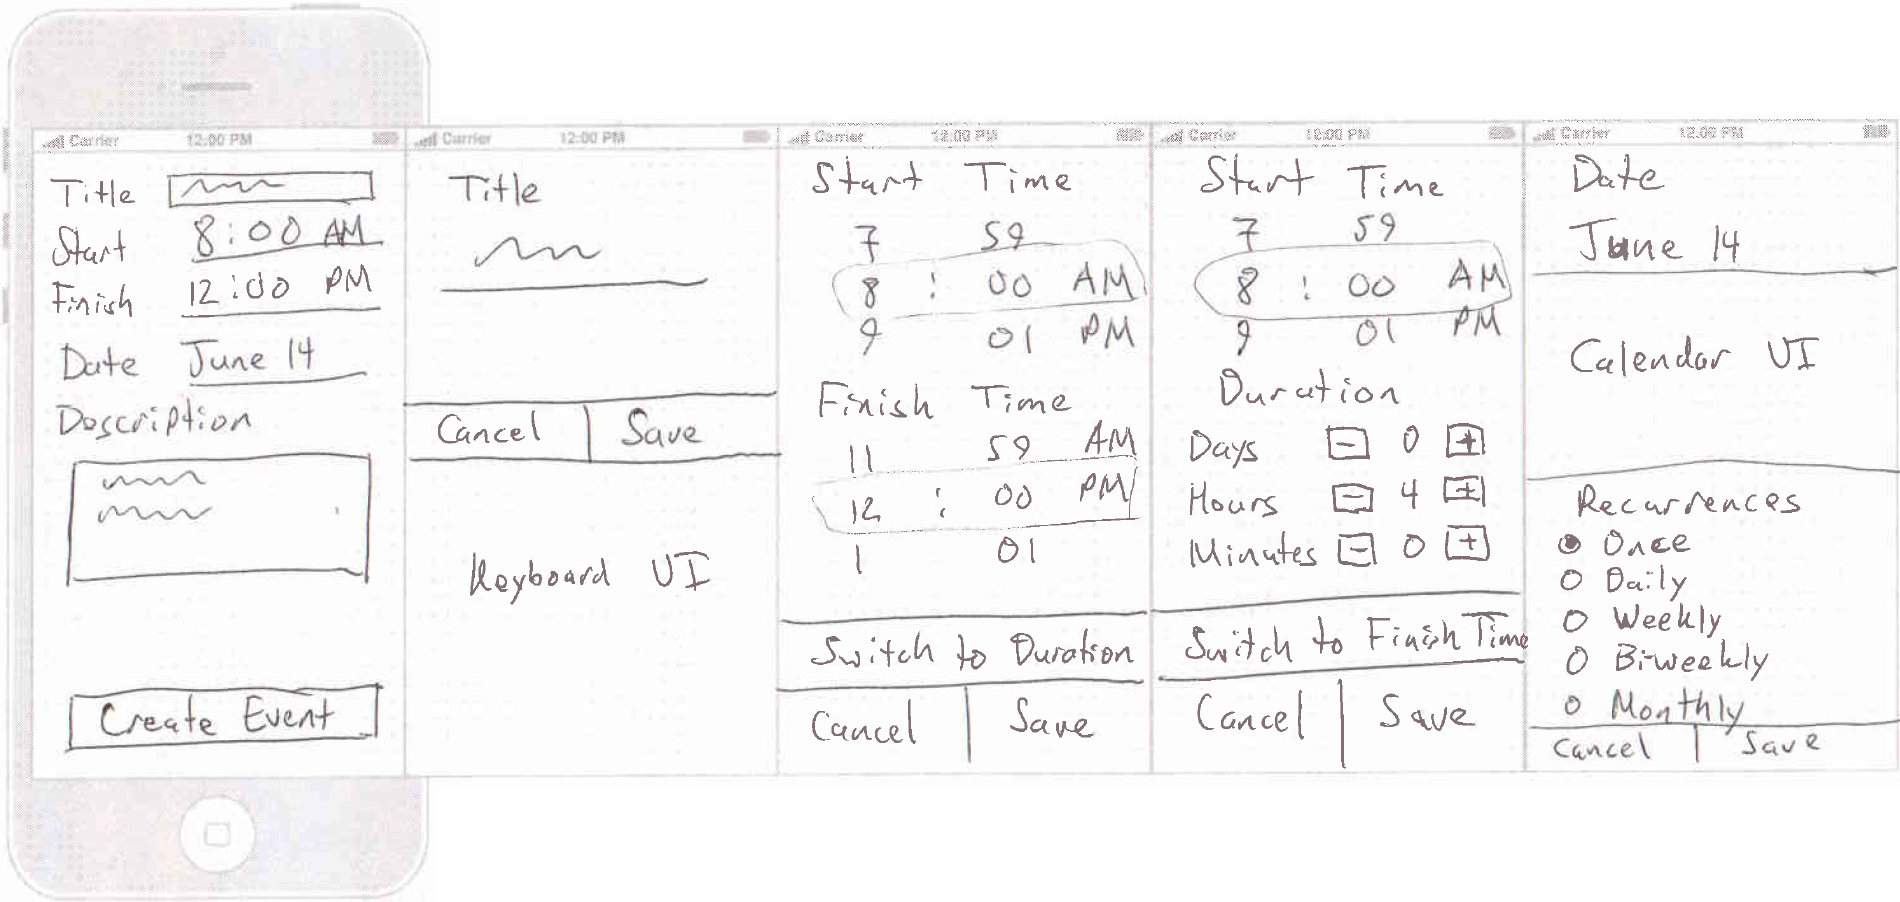 Carrier 12:00 PM
Title
Start 8:00 AM
Finish 12:00 PM
Date June 14
Description
Create Event
Carrier 12:00 PM
Title
Cancel | Save
Keyboard UI
Carrier 12:00 PM
Start Time
7 59
8 : 00 AM
9 01 PM
Finish Time
11 59 AM
12 : 00 PM
1 01
Switch to Duration
Cancel | Save
Carrier 12:00 PM
Start Time
7 59
8 : 00 AM
9 01 PM
Duration
Days - 0 +
Hours - 4 +
Minutes - 0 +
Switch to Finish Time
Cancel | Save
Carrier 12:00 PM
Date
June 14
Calendar UI
Recurrences
Once
Daily
Weekly
Bi-weekly
Monthly
Cancel | Save